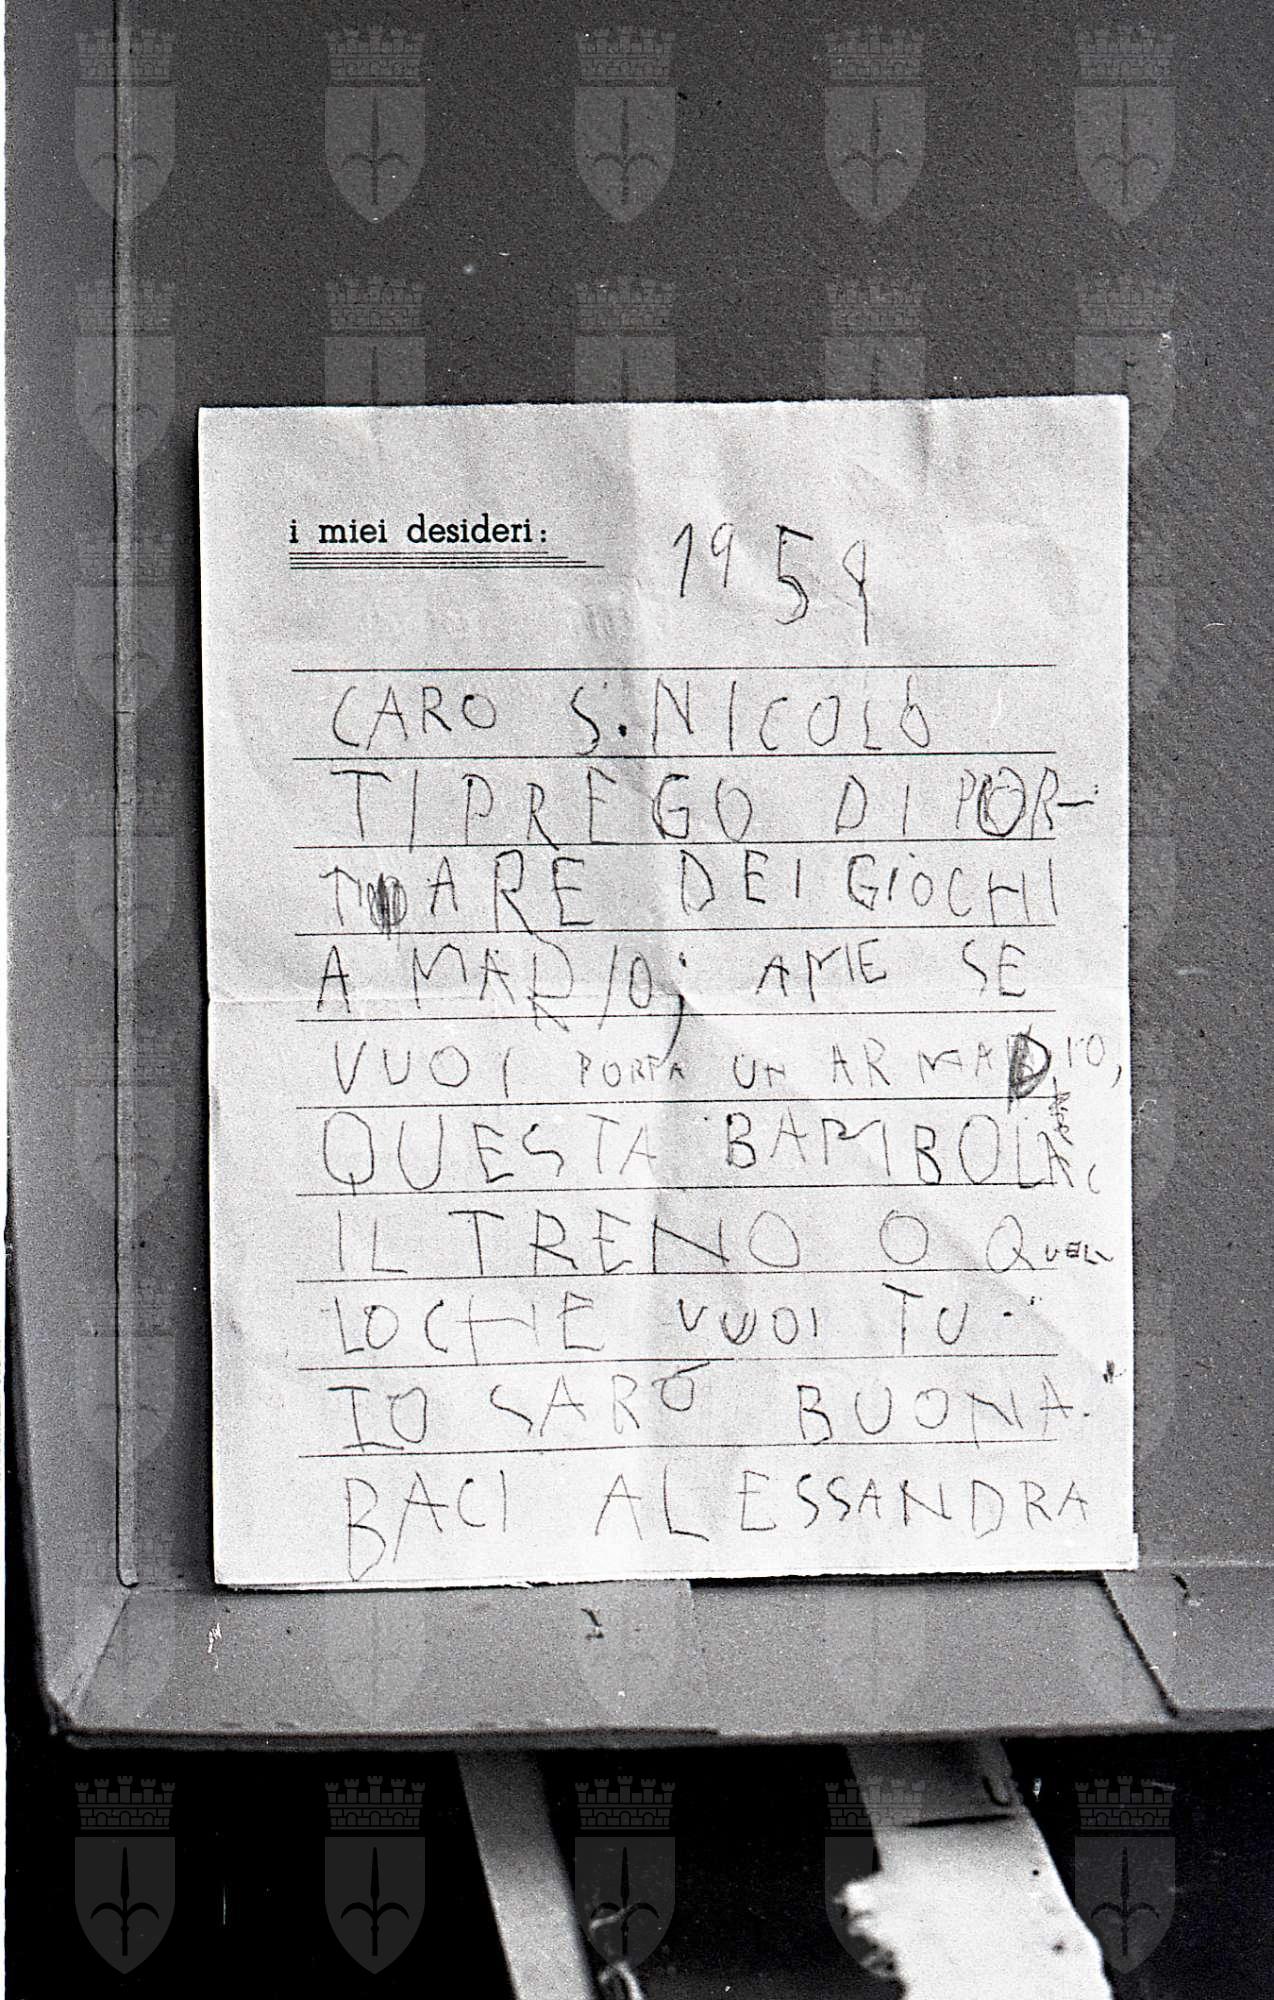 i miei desideri:
1959
CARO S. NICOLÒ
TI PREGO DI POR-
TARE DEI GIOCHI
A MARIO; A ME SE
VUOI PORTA UN ARMADIO,
QUESTA BAMBOLA
IL TRENO O QUEL
LO CHE VUOI TU.
IO SARÓ BUONA.
BACI ALESSANDRA